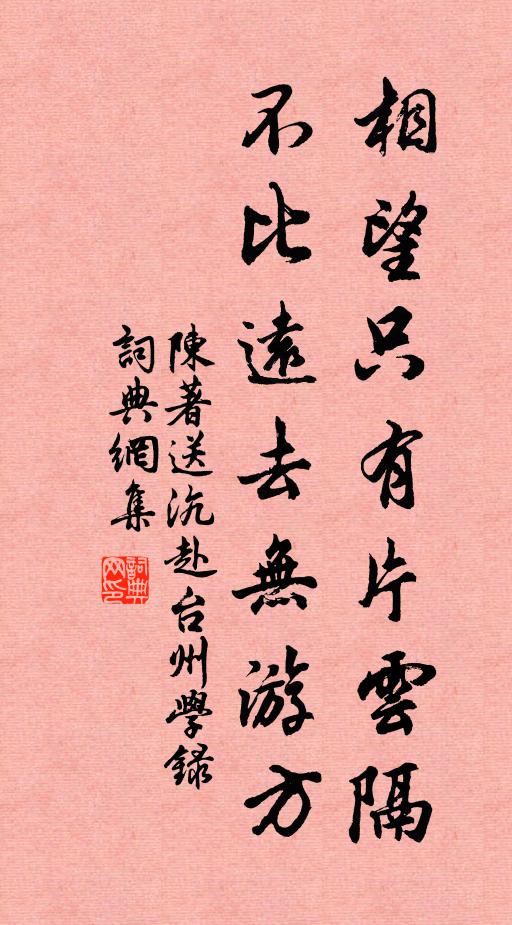 相望只有片雲隔
不比遠去無游方
陳著送沆赴台州學録
詞典網集
詞典網印